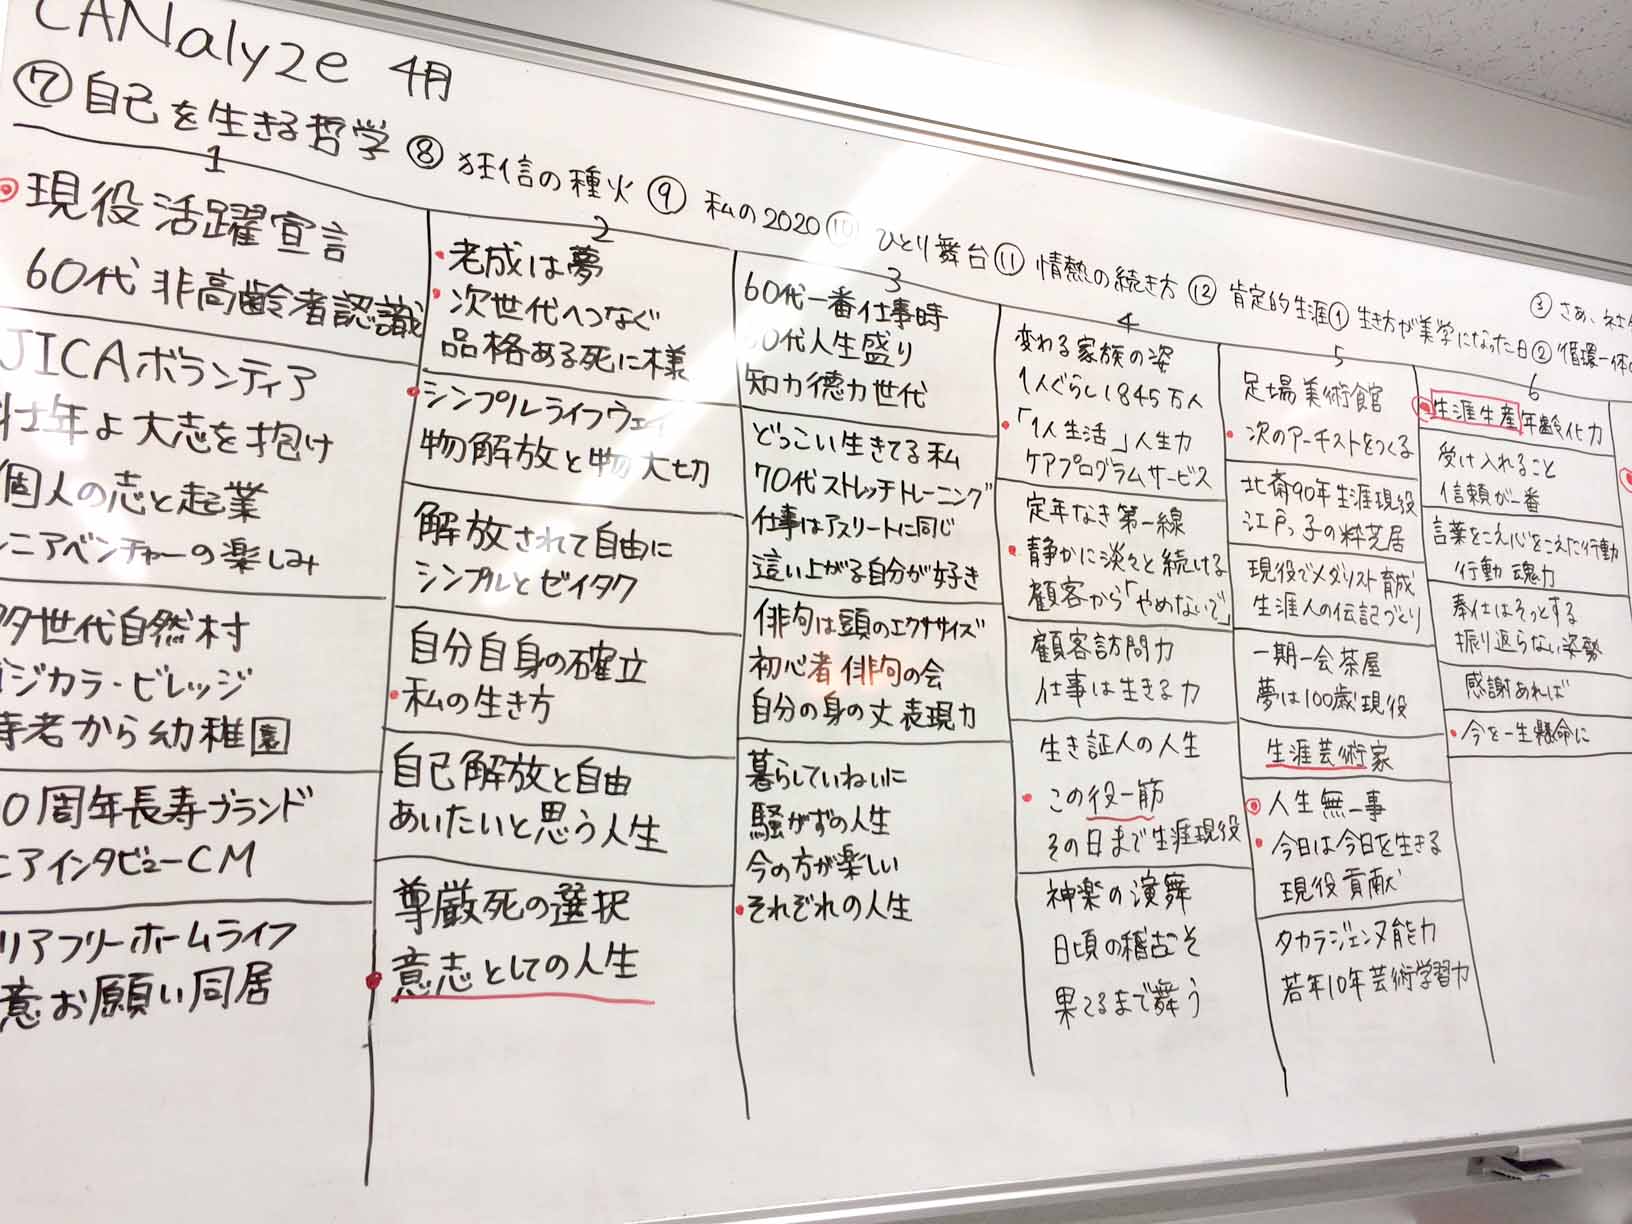 CANalyze 4月
⑦自己を生きる哲学 ⑧狂信の種火 ⑨私の2020 ⑩ひとり舞台 ⑪情熱の続き方 ⑫肯定的生涯 ①生き方が美学になった日 ②循環一体の
③さあ、社会
1
現役活躍宣言
60代非高齢者認識
JICAボランティア
壮年よ大志を抱け
個人の志と起業
ニアベンチャーの楽しみ
多世代自然村
ジカラ・ビレッジ
寿老から幼稚園
0周年長寿ブランド
ニアインタビューCM
リアフリーホームライフ
意お願い同居
2
老成は夢
次世代へつなぐ
品格ある死に様
シンプルライフウェイ
物解放と物大切
解放されて自由に
シンプルとゼイタク
自分自身の確立
私の生き方
自己解放と自由
あいたいと思う人生
尊厳死の選択
意志としての人生
3
60代一番仕事時
0代人生盛り
知力徳力世代
どっこい生きてる私
70代ストレッチトレーニング
仕事はアスリートに同じ
這い上がる自分が好き
俳句は頭のエクササイズ
初心者俳句の会
自分の身の丈表現力
暮らしていねいに
騒がずの人生
今の方が楽しい
それぞれの人生
4
変わる家族の姿
1人ぐらし1845万人
「1人生活」人生力
ケアプログラムサービス
定年なき第一線
静かに淡々と続ける
顧客から「やめないで」
顧客訪問力
仕事は生きる力
生き証人の人生
この役一筋
その日まで生涯現役
神楽の演舞
日頃の稽古こそ
果てるまで舞う
5
足場美術館
次のアーチストをつくる
北斎90年生涯現役
江戸っ子の粋芝居
現役でメダリスト育成
生涯人の伝記づくり
一期一会茶屋
夢は100歳現役
生涯芸術家
人生無事
今日は今日を生きる
現役貢献
タカラジェンヌ能力
若年10年芸術学習力
6
生涯生産年齢化力
受け入れること
信頼が一番
言葉をこえ心をこえた行動
行動魂力
奉仕はそっとする
振り返らない姿勢
感謝あれば
今を一生懸命に